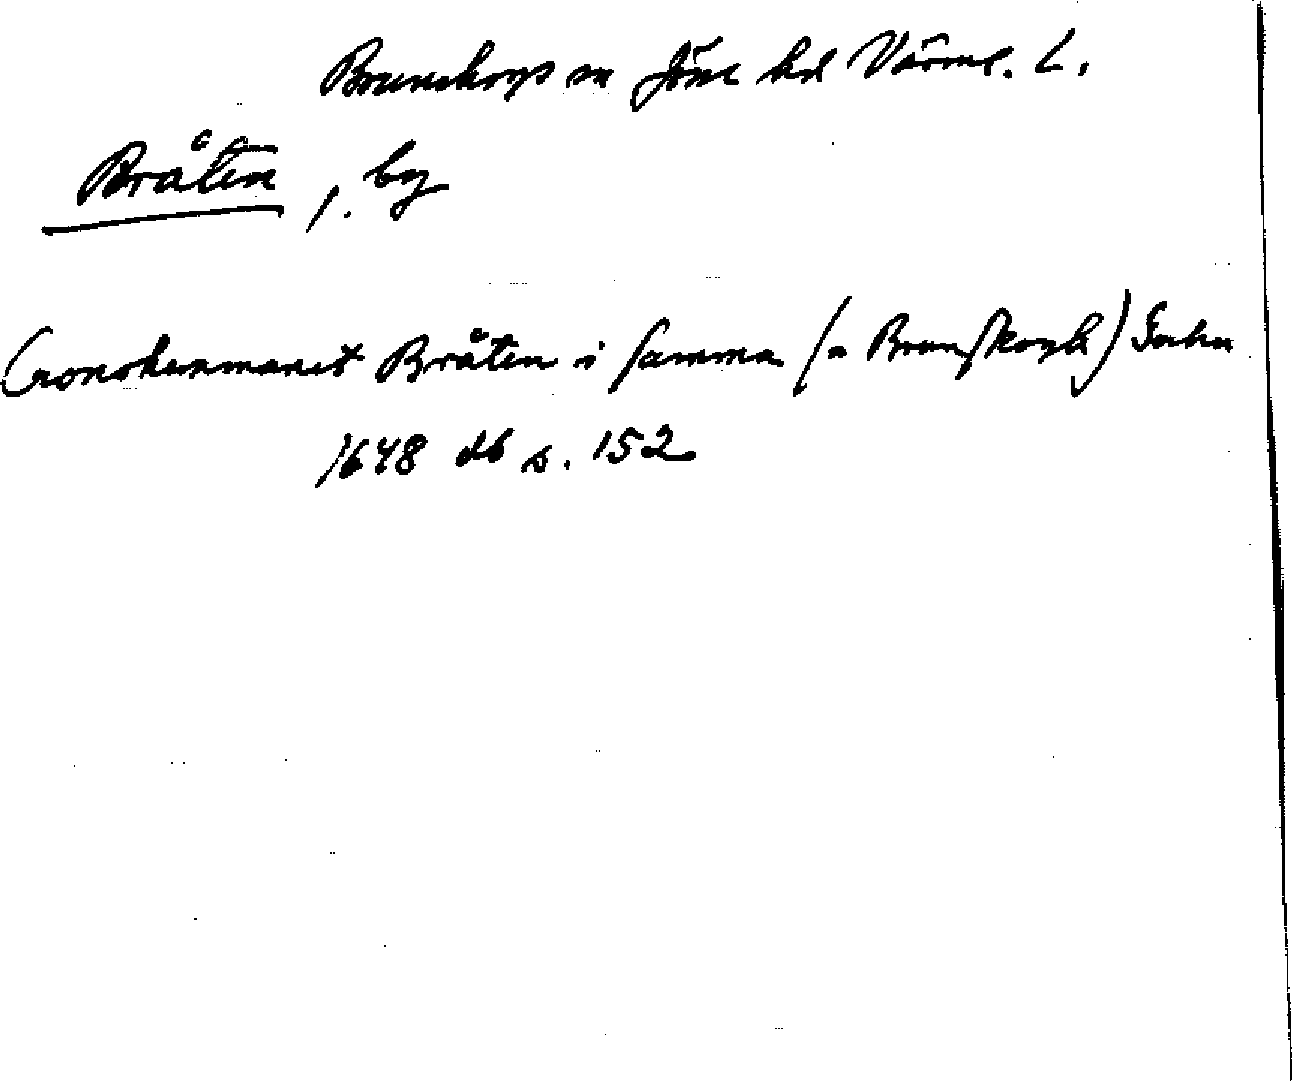 Brunskogs sn Jösse hd Värml. L.
Bråten, 1. by
Cronohemmanet Bråten i samma (a: Brunskogh) Sochn
1648 db s. 152